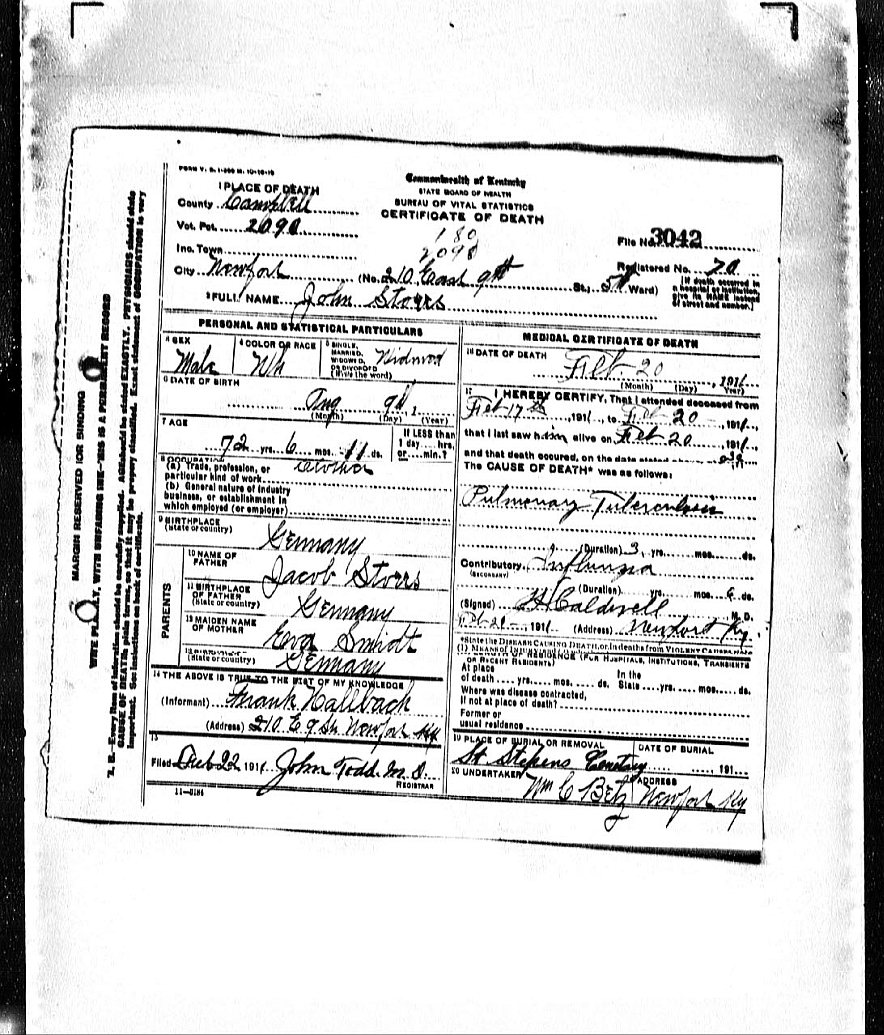 FORM V. S. 1-
Commonwealth of Kentucky
STATE BOARD OF HEALTH
BUREAU OF VITAL STATISTICS
CERTIFICATE OF DEATH
1 PLACE OF DEATH
County Campbell
Vot. Pct. 2090
Inc. Town
City Newport (No. 210 East 9th St., 5th Ward)
180
2090
File No. 3042
Registered No. 70
[If death occurred in a hospital or institution, give its NAME instead of street and number.]
2 FULL NAME John Storrs
PERSONAL AND STATISTICAL PARTICULARS
3 SEX Male
4 COLOR OR RACE Wh
5 SINGLE, MARRIED, WIDOWED, OR DIVORCED (Write the word) Widowed
6 DATE OF BIRTH
Aug 9th 1
(Month) (Day) (Year)
7 AGE
72 yrs. 6 mos. 11 ds.
If LESS than 1 day hrs. or min.?
8 OCCUPATION
(a) Trade, profession, or particular kind of work
(b) General nature of industry business, or establishment in which employed (or employer)
9 BIRTHPLACE
(State or country) Germany
PARENTS
10 NAME OF FATHER Jacob Storrs
11 BIRTHPLACE OF FATHER
(State or country) Germany
12 MAIDEN NAME OF MOTHER Eva Smidt
(State or country) Germany
14 THE ABOVE IS TRUE TO THE BEST OF MY KNOWLEDGE
(Informant) Frank Hallbach
(Address) 210 E 9 St Newport Ky
15
Filed 22 191 John Todd M.D.
REGISTRAR
11-3184
MEDICAL CERTIFICATE OF DEATH
16 DATE OF DEATH
Feb 20, 191
(Month) (Day) (Year)
17 I HEREBY CERTIFY, That I attended deceased from
Feb 17th, 191, to Feb 20, 191,
that I last saw him alive on Feb 20, 191,
and that death occured, on the date stated
The CAUSE OF DEATH* was as follows:
Pulmonary Tuberculosis
(Duration) 3 yrs. mos. ds.
Contributory Influenza
(SECONDARY)
(Duration) yrs. mos. 6 ds.
(Signed) Caldwell M. D.
191 (Address) Newport Ky.
*State the DISEASE CAUSING DEATH, or, in deaths from VIOLENT CAUSES,
LENGTH OF RESIDENCE (FOR HOSPITALS, INSTITUTIONS, TRANSIENTS OR RECENT RESIDENTS)
At place of death yrs. mos. ds. In the State yrs. mos. ds.
Where was disease contracted, if not at place of death?
Former or usual residence
19 PLACE OF BURIAL OR REMOVAL DATE OF BURIAL
St Stephens Cemetary 191
20 UNDERTAKER ADDRESS
Wm C Betz Newport Ky
MARGIN RESERVED FOR BINDING